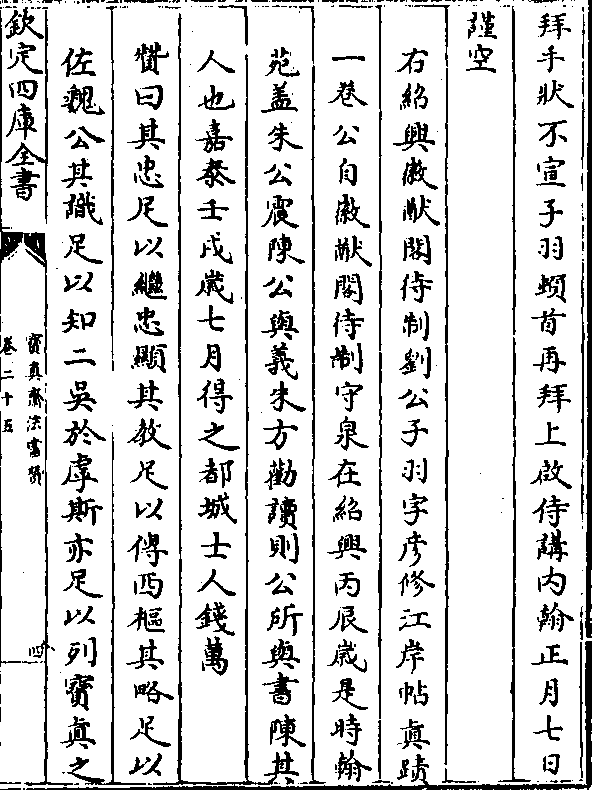 拜手狀不宣子羽頓首再拜上啟侍講内翰正月七日
謹空
右紹興徽猷閣待制劉公子羽字彦修江岸帖真蹟
一卷公自徽猷閣待制守泉在紹興丙辰歲是時翰
苑葢朱公震陳公與義朱方勸讀則公所與書陳其
人也嘉泰壬戌歲七月得之都城士人錢萬
贊曰其忠足以繼忠顯其教足以傳西樞其略足以
佐魏公其識足以知二吳於虖斯亦足以列寳真之
欽定四庫全書
寳真齋法書贊
卷二十五
四